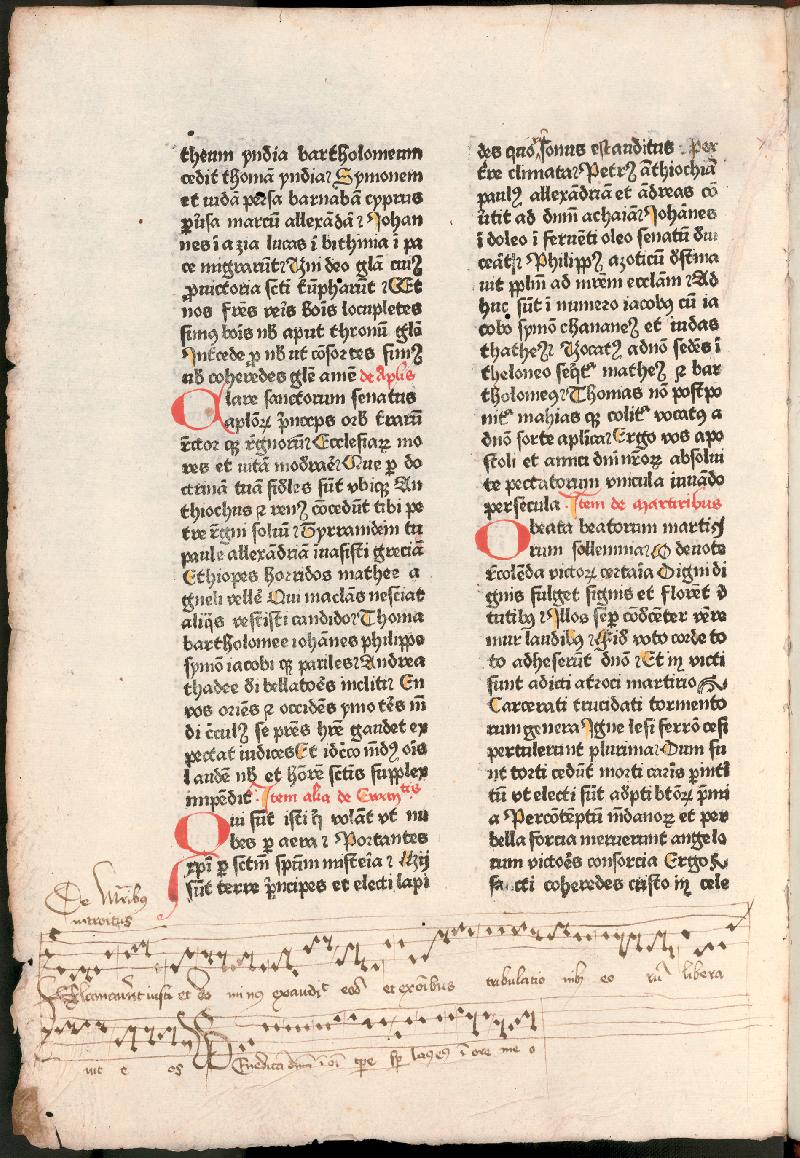 theum yndia bartholomeum
cedit thomā yndiaꝛ Symonem
et iudā persa barnabān cyprus
ꝑuisa marcū allexādā ꝛ Johan
nes ī azia lucas ī bithinia ī pa
ce migrarūt ꝛ Uni deo glā cuiꝰ
ꝓ uictoria scti tūpharūt ꝛ Et
nos frēs reīs boīs locupletes
simꝰ boīs nb aput thronū glā
Intcede ꝓ nb ut cōsortes simꝰ
nb coheredes glē amē de Aplis
Clare sanctorum senatus
aplōꝝ pͥnceps orb trarū
rctor qꝫ rgnorūꝛ Ecclesiaꝝ mo
res et uitā modrāeꝛ Que ꝑ do
ctrinā tuā fidles sūt vbiqꝫ An
thiochus ꝛ renꝰ cōcedūt tibi pe
tre rgni soliū ꝛ Tyrranidem tu
paule allexādriā inuasisti greciā
Ethiopes horridos mathee a
gneli vellē Qui maclās nesciat
aliqs vestisti candidoꝛ Thoma
bartholomee iohānes philippe
symō iacobi qꝫ parilesꝛ Andrea
thadee di bellatoēs inclitiꝛ En
vos oriēs ꝛ occidēs ymo tēs m̄
di cculꝰ se prēs hr̄e gaudet ex
pectat iudices Et idcco mdꝰ oīs
laudē nb et honre sctis supplex
impēdit Item alia de Ewantis
Qui sūt isti qͥ volāt vt nu
bes ꝑ aera ꝛ Portantes
xp̄i ꝑ sctm̄ spt̄m misteia ꝛ Hij
sūt terre pͥncipes et electi lapi
des quoꝝ sonus est auditus per
tre climataꝛ Petrꝰ āthiochiā
paulꝰ allexādriā et ādreas cō
ūtit ad dnm̄ achaiāꝛ Johānes
ī doleo ī feruēti oleo senatū dui
ceātꝛ Philippꝰ azoticū dstina
uit pplm̄ ad mrēm ecclāmꝛ Ad
huc sūt ī numero iacobꝰ cū ia
cobo symō chananeꝰ et iudas
thatheꝰꝛ Uocatꝰ ad nō sedēs ī
theloneo seqtꝛ matheꝰ ꝛ bar
tholomeꝰꝛ Thomas nō postpo
nitꝛ mahias qꝫ colitꝛ vocatꝰ a
dnō sorte aplicaꝛ Ergo vos apo
stoli et amici dnī nroꝝ absolui
te peccatorum vincula iuuādo
per secula Item de Martiribus
O beata beatorum martij
rum sollemniaꝛ O deuote
rcolēda victoꝝ certaīa Digni di
gnis fulget signis et florēt v̄
tutibꝰ Illos sēp cōdcēter vēre
mur laudibꝰ ꝛ Fid voto corde to
to adheserūt dnō ꝛ Et in victi
sunt adicti atroci martirio
Carcerati trucidati tormento
rum genera Igne lesi ferrō cesi
pertulerunt plurimaꝛ Dum su
nt torti cedūt morti carīs ꝑ inti
tū vt electi sūt adpti btōꝝ pͥmi
a Per cōtēptū mdanoꝝ et per
bella forcia meruerunt angelo
rum victoēs consorcia Ergo
fa cti coheredes cristo in cele
De Mribus
introitus
Clamauerūt iusti et do minus exaudit eos et ex oībus tribulatio nibꝰ eo rū libera
uit e os Benedicā dnm̄ ī oī tpre sp laus eiꝰ ī ore me o